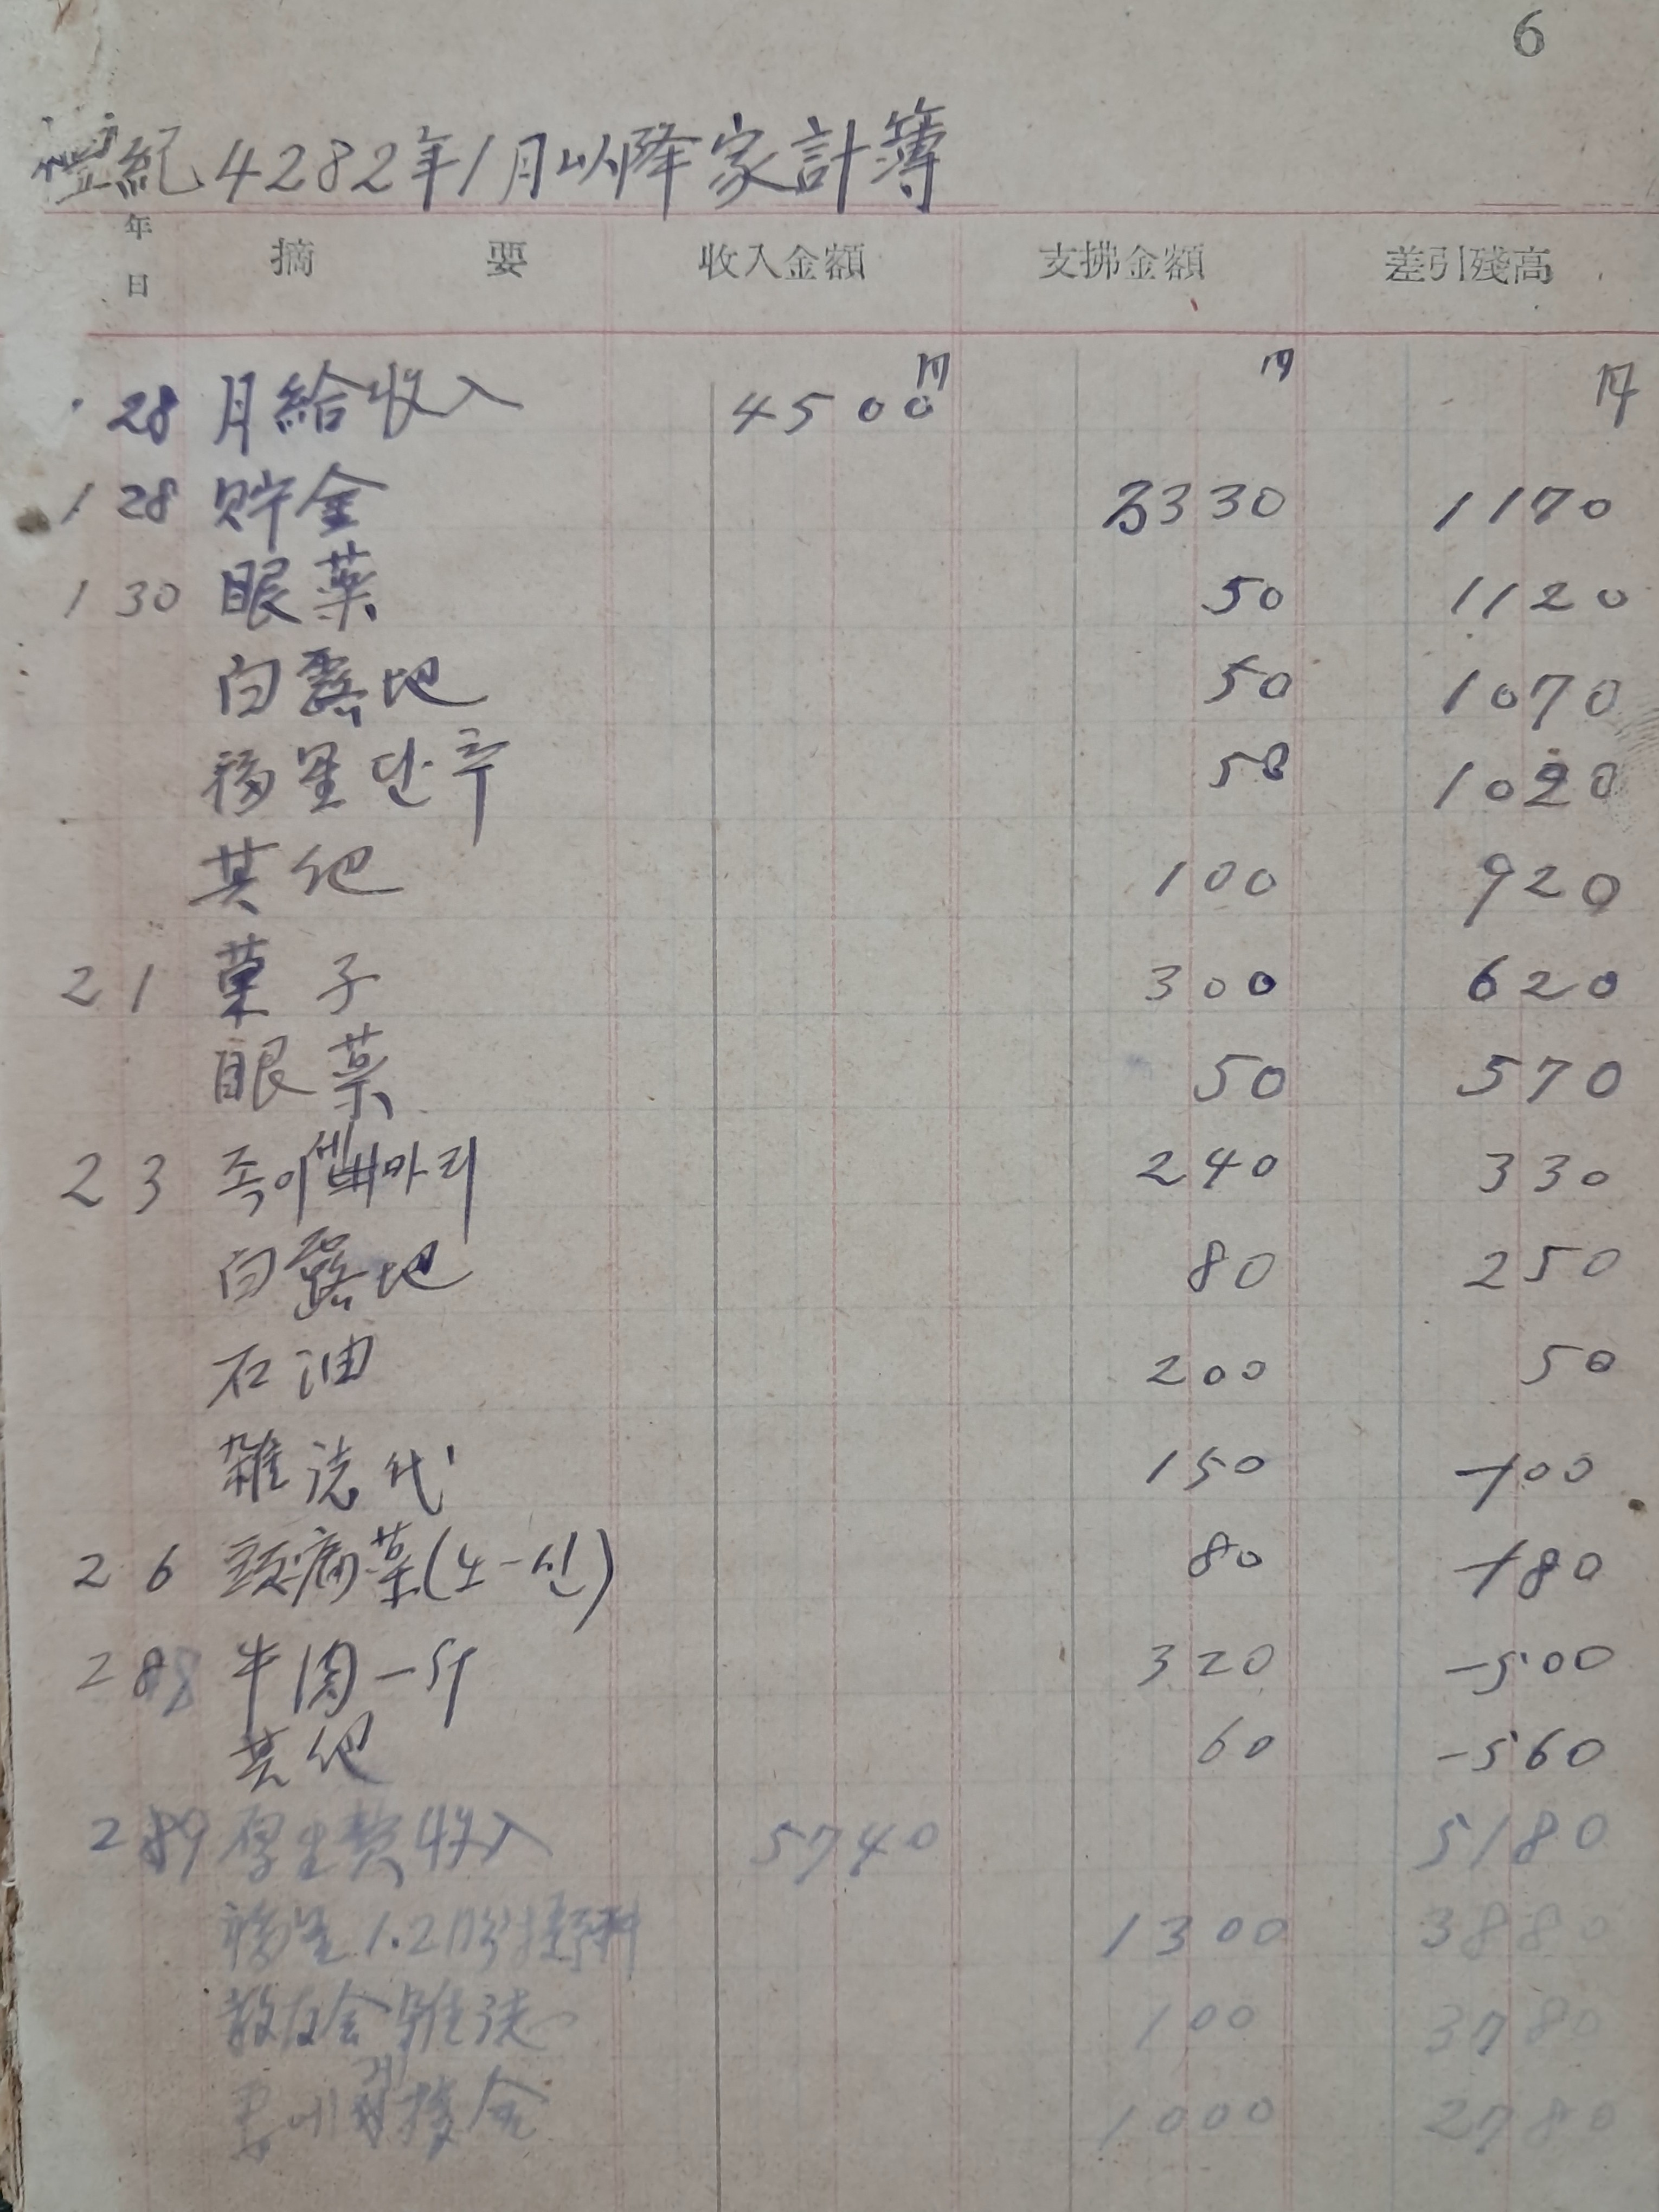 6
檀紀4282年1月以降家計簿
年
日 摘要 收入金額 支拂金額 差引殘高
円 円 円
28 月給收入 4500
1 28 貯金 3330 1170
1 30 眼薬 50 1120
白露地 50 1070
福星단추 50 1020
其他 100 920
2 1 菓子 300 620
眼薬 50 570
2 3 족이세마리 240 330
白露地 80 250
石油 200 50
雜誌代 150 -100
2 6 頭痛薬(노-신) 80 -180
2 8 牛肉一斤 320 -500
其他 60 -560
2 9 厚生費收入 5740 5180
福星1.2月分授業料 1300 3880
敎友会雜誌 100 3780
妻에게 金 1000 2780